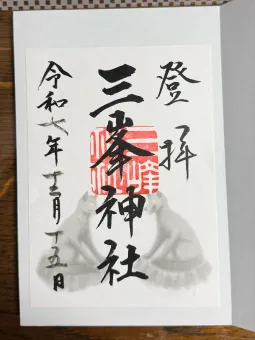 登拝
三峯神社
令和七年十二月十五日